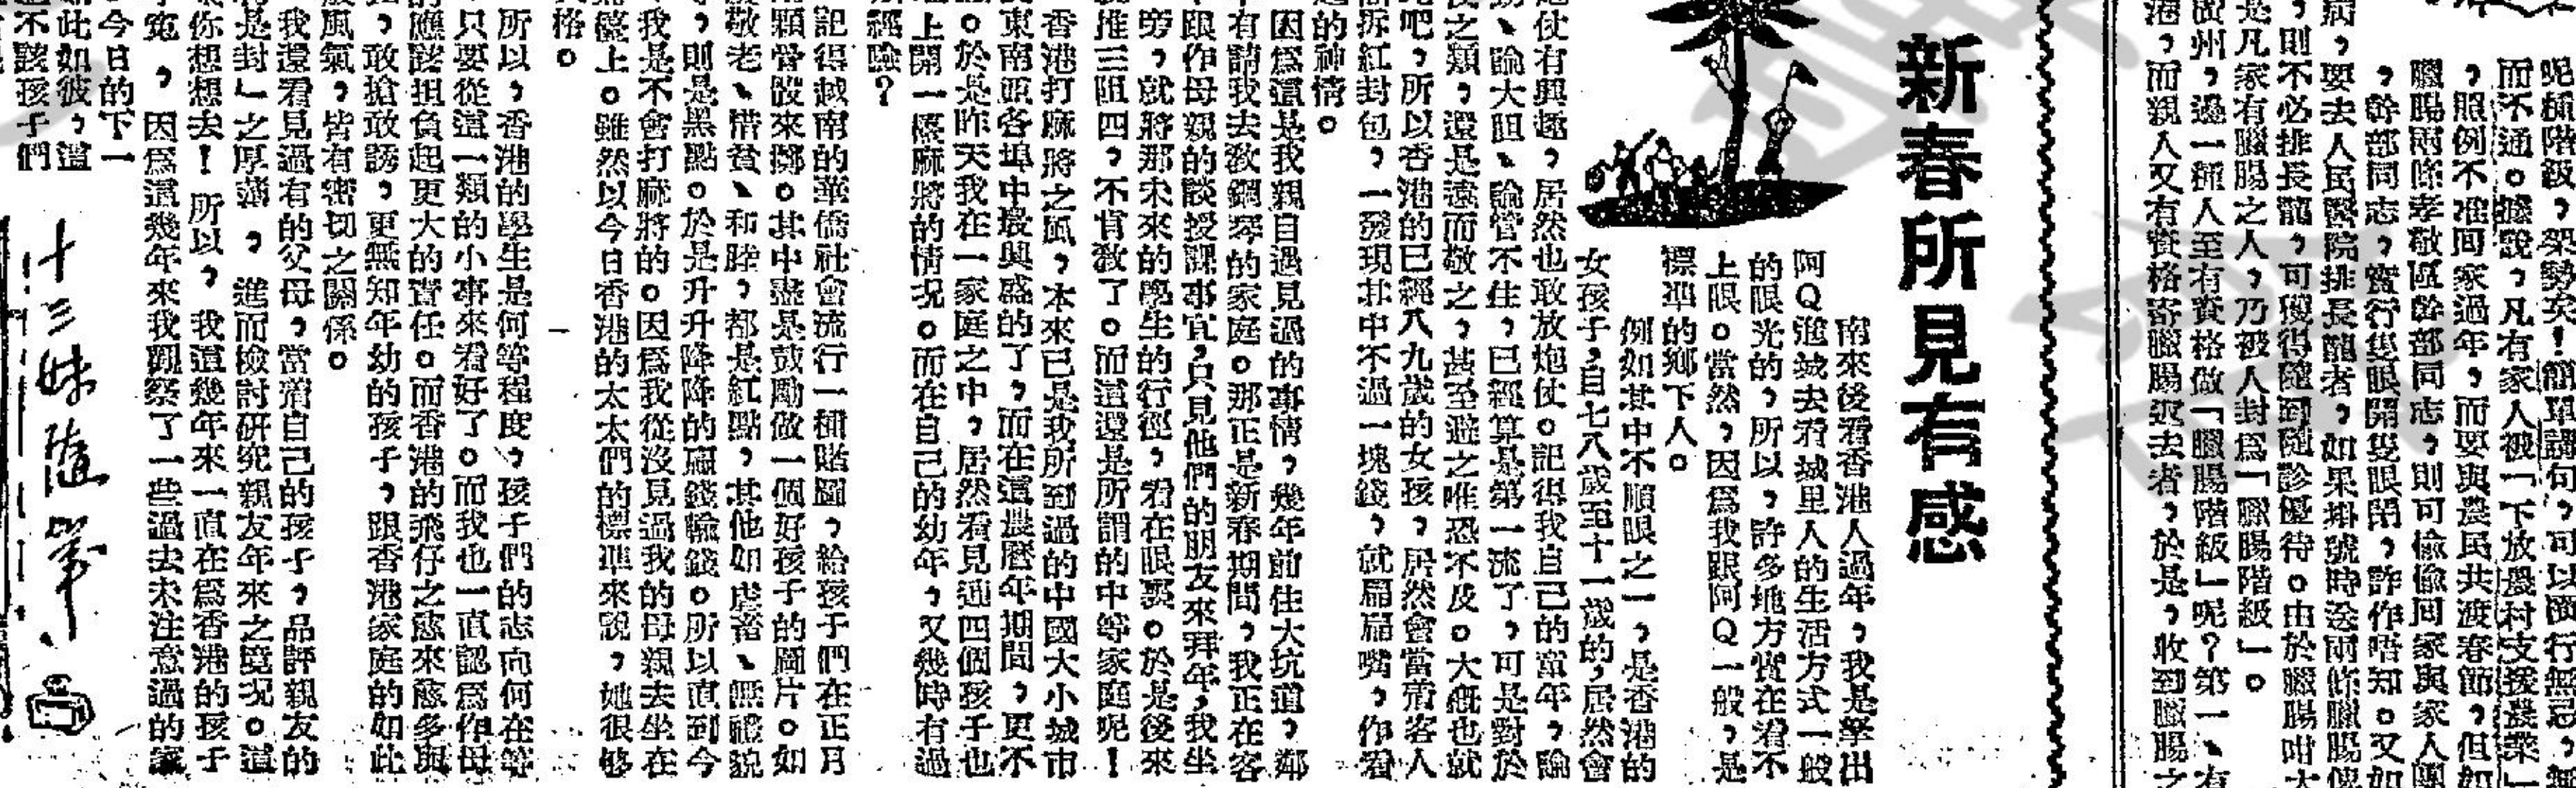 呢種階級，架勢矣！簡單講句，可以橫行無忌，無
而不通。據說，凡有家人被「下放農村支援農業」
，照例不准回家過年，而要與農民共渡春節，但如
臘腸兩條孝敬區幹部同志，則可偷偷回家與家人團
，幹部同志，實行隻眼開隻眼閉，詐作唔知。又如
病，要去人民醫院排長龍者，如果掛號時送兩條臘腸俾
，則不必排長龍，可獲得隨到隨診優待。由於臘腸咁大
是凡家有臘腸之人，乃被人封爲「臘腸階級」。
廣州，邊一種人至有資格做「臘腸階級」呢？第一、有
港，而親人又有資格寄臘腸返去者，於是，收到臘腸之
新春所見有感
南來後看香港人過年，我是拏出
阿Q進城去看城里人的生活方式一般
的眼光的，所以，許多地方實在看不
上眼。當然，因爲我跟阿Q一般，是
標準的鄉下人。
例如其中不順眼之一，是香港的
女孩子，自七八歲至十一歲的，居然會
炮仗有興趣，居然也敢放炮仗。記得我自己的童年，論
、論大胆、論管不住，已經算是第一流了，可是對於
之類，還是遠而敬之，甚至避之唯恐不及。大概也就
吧，所以香港的已經八九歲的女孩，居然會當着客人
拆紅封包，一發現其中不過一塊錢，就扁扁嘴，作看
的神情。
因爲這是我親自遇見過的事情，幾年前住大坑道，鄰
有請我去敎鋼琴的家庭。那正是新春期間，我正在客
跟作母親的談授課事宜，只見他們的朋友來拜年，我坐
旁，就將那未來的學生的行徑，看在眼裏。於是後來
推三阻四，不肯敎了。而這還是所謂的中等家庭呢！
香港打麻將之風，本來已是我所到過的中國大小城市
東南亞各埠中最興盛的了，而在這農曆年期間，更不
。於是昨天我在一家庭之中，居然看見連四個孩子也
上開一檯麻將的情況。而在自己的幼年，又幾時有過
經驗？
記得越南的華僑社會流行一種賭圖，給孩子們在正月
顆骨骰來擲。其中盡是鼓勵做一個好孩子的圖片。如
敬老、惜貧、和睦，都是紅點，其他如虐畜、無禮貌
，則是黑點。於是升升降降的贏錢輸錢。所以直到今
我是不會打麻將的。因爲我從沒見過我的母親去坐在
檯上。雖然以今日香港的太太們的標準來說，她很够
格。
所以，香港的學生是何等程度，孩子們的志向何在等
只要從這一類的小事來看好了。而我也一直認爲作母
應該担負起更大的責任。而香港的飛仔之愈來愈多與
，敢搶敢誘，更無知年幼的孩子，跟香港家庭的如此
風氣，皆有密切之關係。
我還看見過有的父母，當着自己的孩子，品評親友的
是封」之厚薄，進而檢討研究親友年來之境況。這
你想想去！所以，我這幾年來一直在爲香港的孩子
寃，因爲這幾年來我觀察了一些過去未注意過的家
今日的下一
此如彼，這
不該孩子們
十三妹隨筆